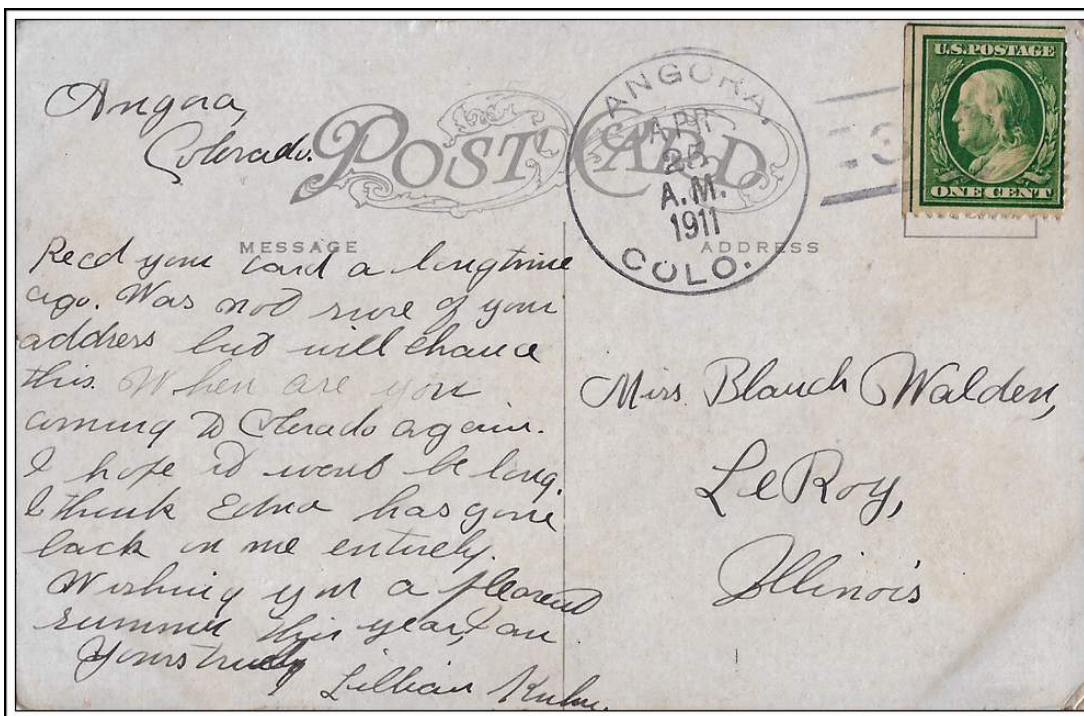 Angora,
Colorado.
POST CARD
ANGORA,
APR
25
A.M.
1911
COLO.
U.S. POSTAGE
ONE CENT
MESSAGE
Recd your card a longtime
ago. Was not sure of your
address but will chance
this. When are you
coming to Colorado again.
I hope it wont be long.
I think Edna has gone
back on me entirely.
Wishing you a pleasent
summer this year, I am
Yours truly
Lillian
ADDRESS
Miss Blanch Walden,
LeRoy,
Illinois